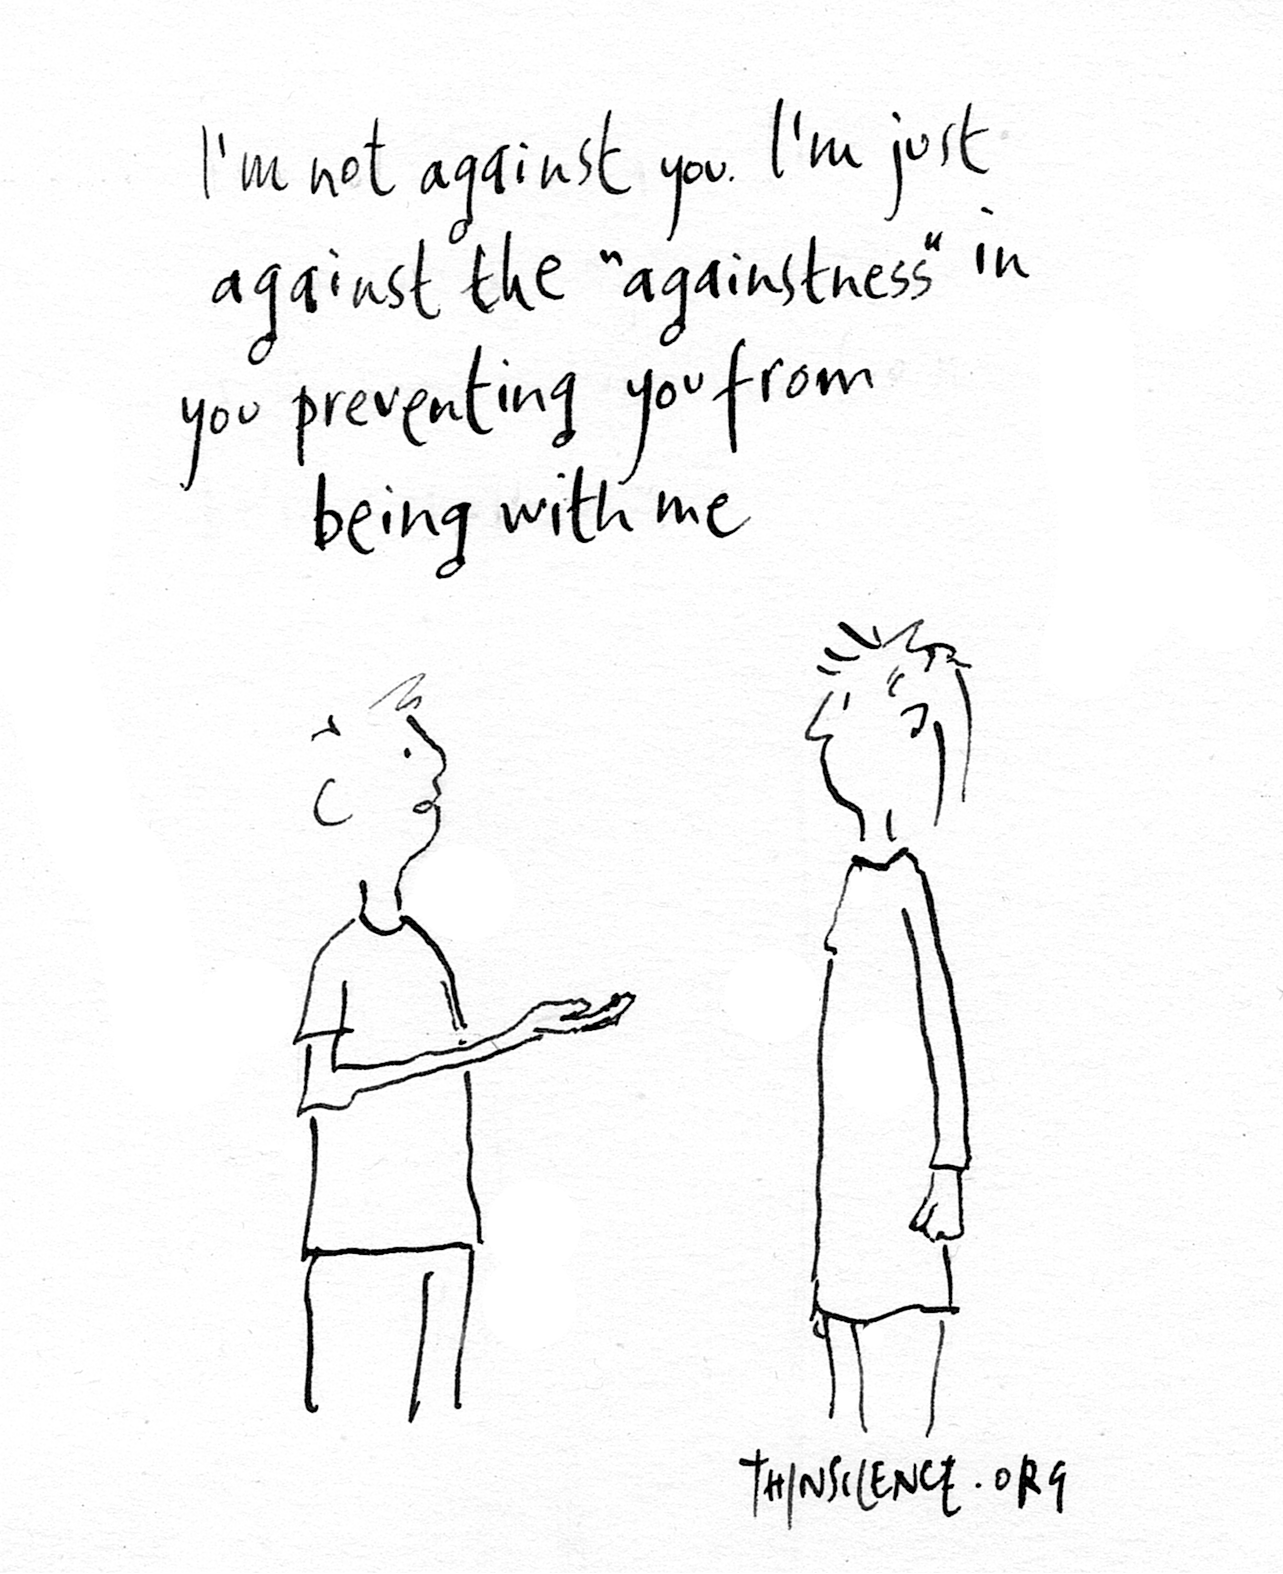 I'm not against you. I'm just
against the "againstness" in
you preventing you from
being with me
THINSILENCE.ORG